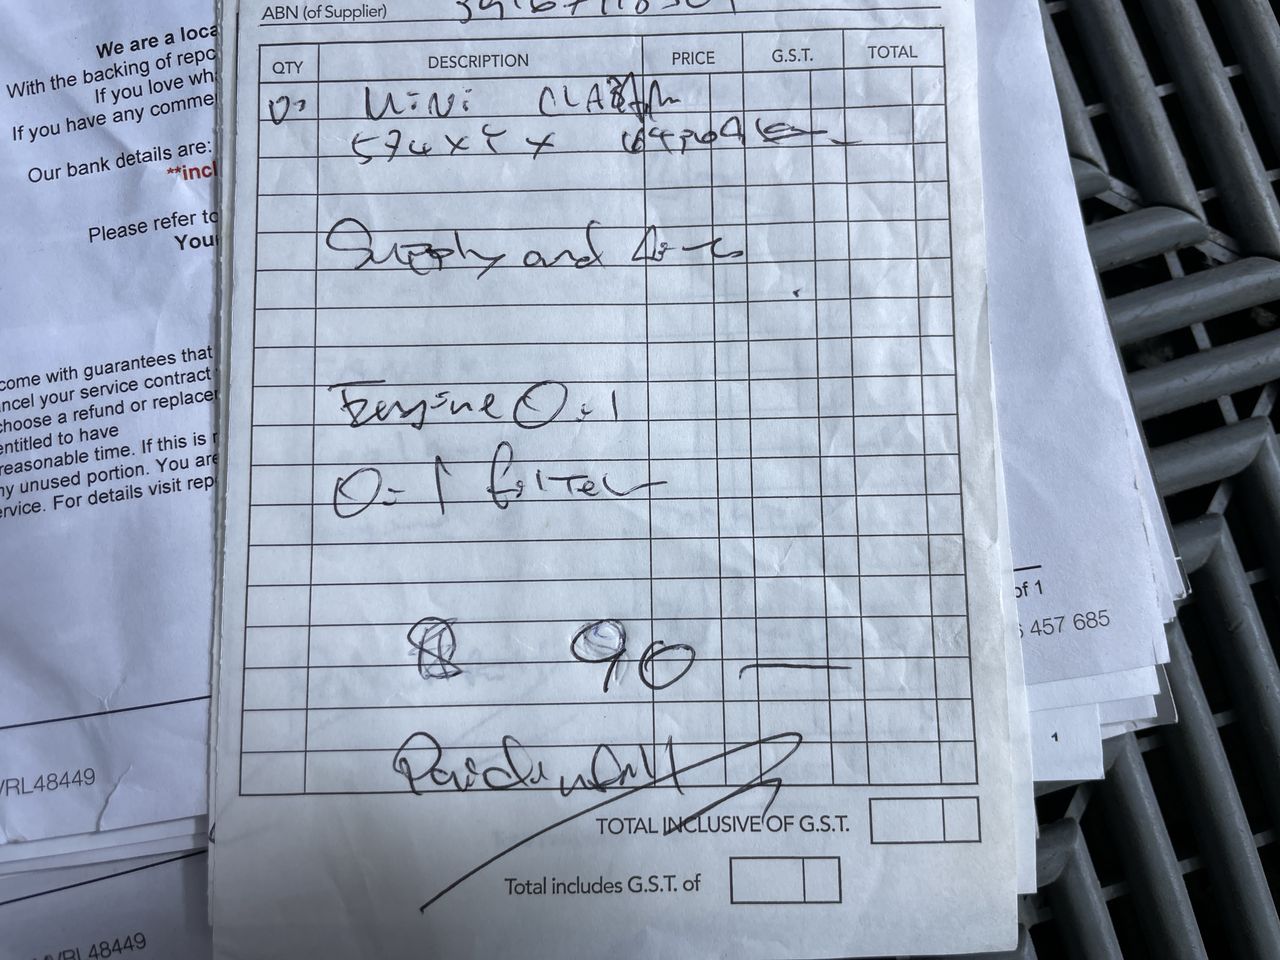 We are a loca
With the backing of repc
If you love wh
If you have any comme
Our bank details are:
**incl
Please refer to
Your
come with guarantees that
ncel your service contract
choose a refund or replacer
entitled to have
reasonable time. If this is r
ny unused portion. You are
ervice. For details visit rep
/RL48449
VRL48449
ABN (of Supplier)
QTY DESCRIPTION PRICE G.S.T. TOTAL
MiNi
Supply and
Engine Oil
Oil filter
$ 90 —
Paid in full
TOTAL INCLUSIVE OF G.S.T.
Total includes G.S.T. of
of 1
457 685
1